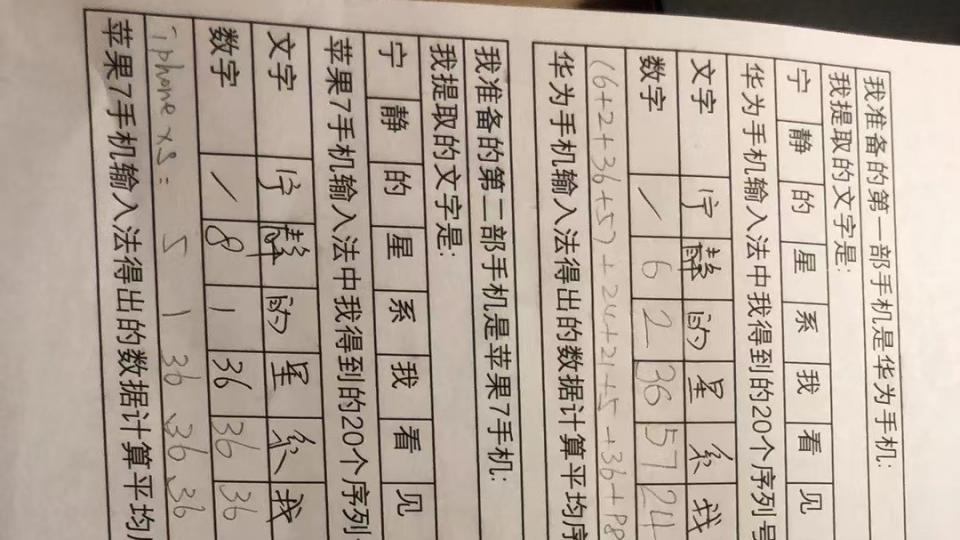 我准备的第一部手机是华为手机:
我提取的文字是:
宁 静 的 星 系 我 看 见
华为手机输入法中我得到的20个序列号
文字 宁 静 的 星 系 我
数字 / 6 2 36 57 24
(6+2+36+57+24+21+5+36+98
华为手机输入法得出的数据计算平均序
我准备的第二部手机是苹果7手机:
我提取的文字是:
宁 静 的 星 系 我 看 见
苹果7手机输入法中我得到的20个序列
文字 宁 静 的 星 系 我
数字 / 8 1 36 36 36
iphone xs: 5 1 36 36 36
苹果7手机输入法得出的数据计算平均